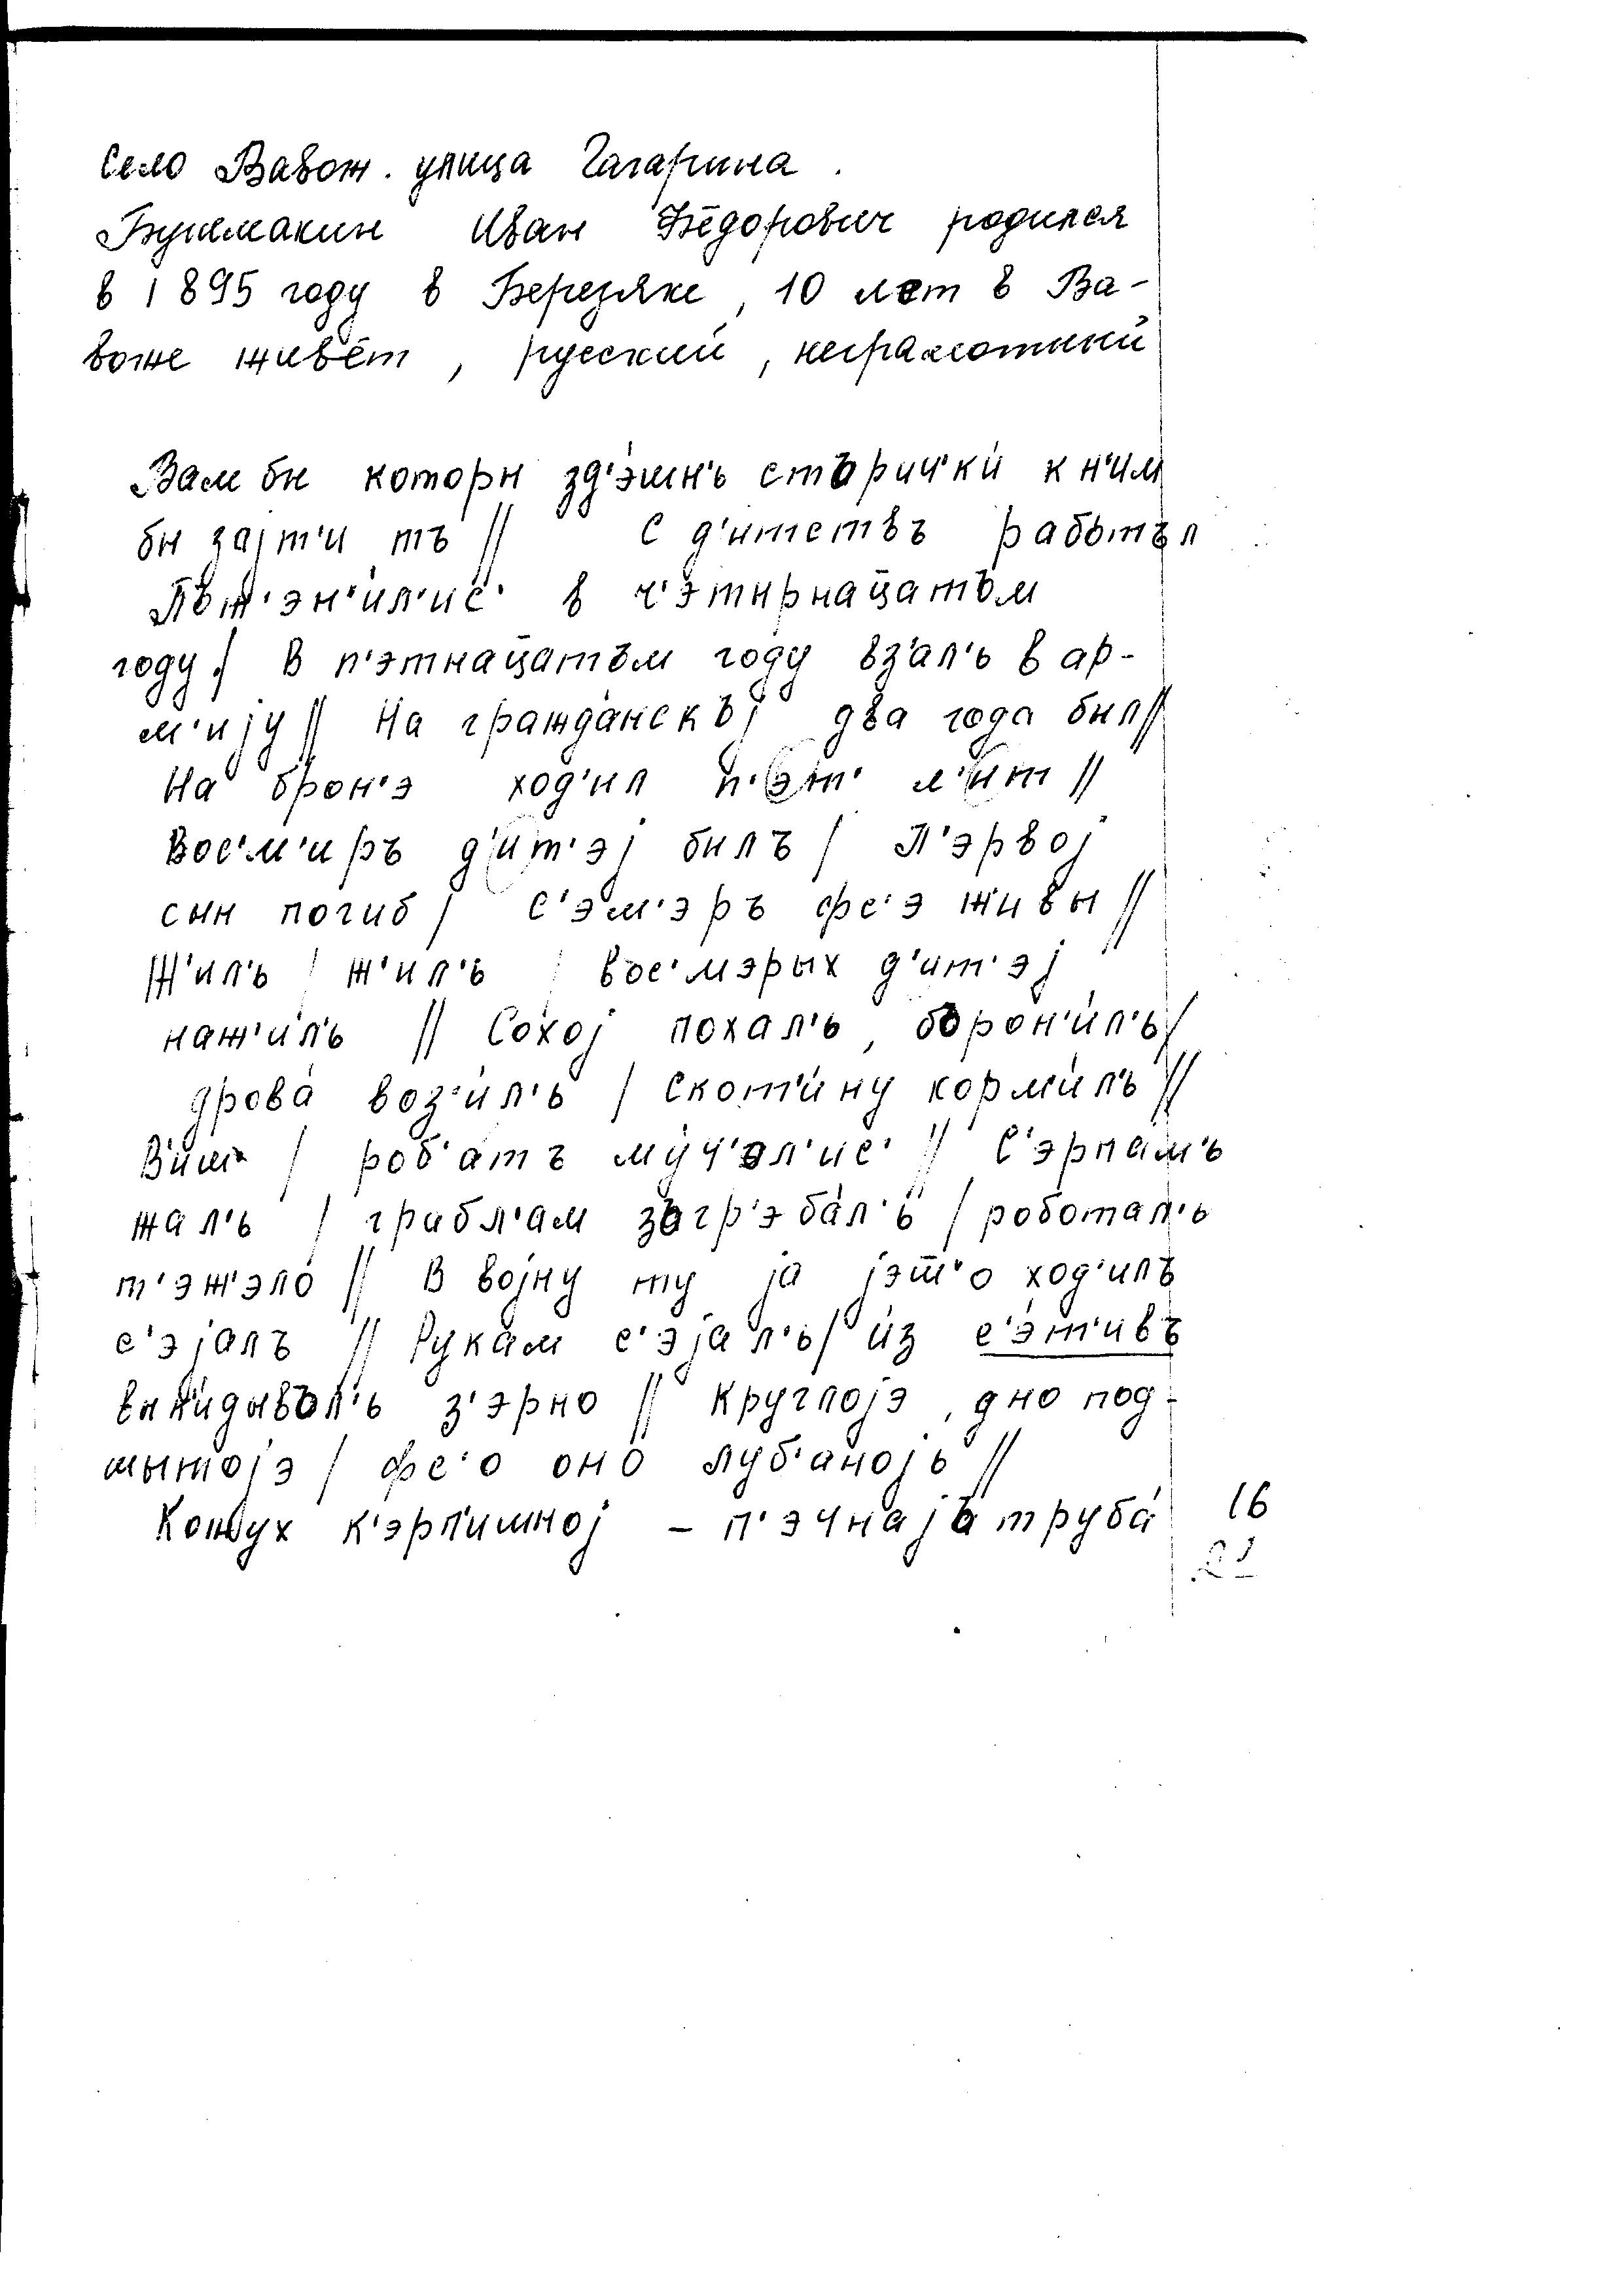 Село Вавож. улица Гагарина.
Бушмакин Иван Фёдорович родился
в 1895 году в Березяке, 10 лет в Ва-
воже живёт, русский, неграмотный
Вам бы которы зд'э́шн'ь стъричк'и́ к н'им
бы зајт'и тъ // С д'итствъ работъл
Пъж'эн'и́л'ис' в ч'этырнац̄атъм
году / В п'этнац̄атъм году вз'ал'ь в ар-
м'ију // На гражда́нскъј два года был //
На брон'э ход'ил п'эт' л'ит //
Вос'м'иръ д'ит'эј былъ / П'эрвој
сын погиб / с'эм'эръ фс'э живы //
Ж'ил'ь / ж'ил'ь / вос'мэрых д'ит'эј
наж'и́л'ь // Сохо́ј похал'ь, борон'и́л'ь /
дрова́ воз'и́л'ь / скот'и́ну корм'и́л'ь //
В'иш / роб'а́тъ му́ч'ал'ис' // С'эрпам'ь
жал'ь / грабл'ам загр'эба́л'ь / роботал'ь
т'эж'эло́ // В војну ту ја јэт̄'о ход'илъ
с'эјалъ // Рука́м с'эјал'ь / и́з с'э́т'ивъ
вык'идывъл'ь з'эрно // Круглојэ, дно под-
шытојэ / фс'о оно́ луб'аноја //
Кожух к'эрп'ишној – п'эчнајъ труба́
16
21